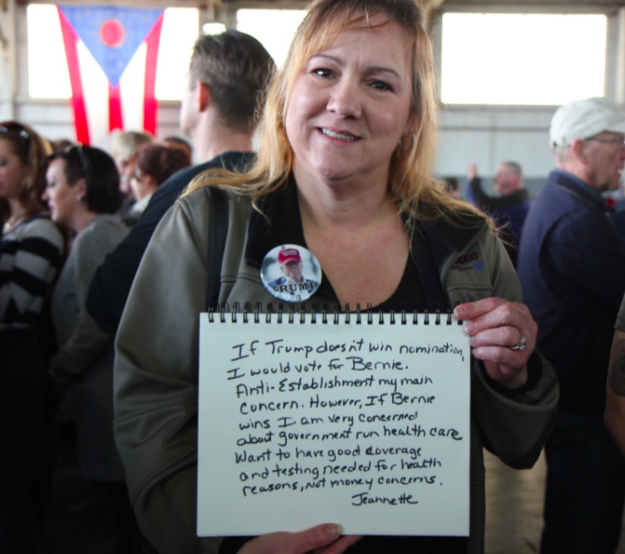 TRUMP
If Trump doesn't win nomination,
I would vote for Bernie.
Anti-Establishment my main
concern. However, If Bernie
wins I am very concerned
about government run health care
Want to have good coverage
and testing needed for health
reasons, not money concerns.
Jeannette